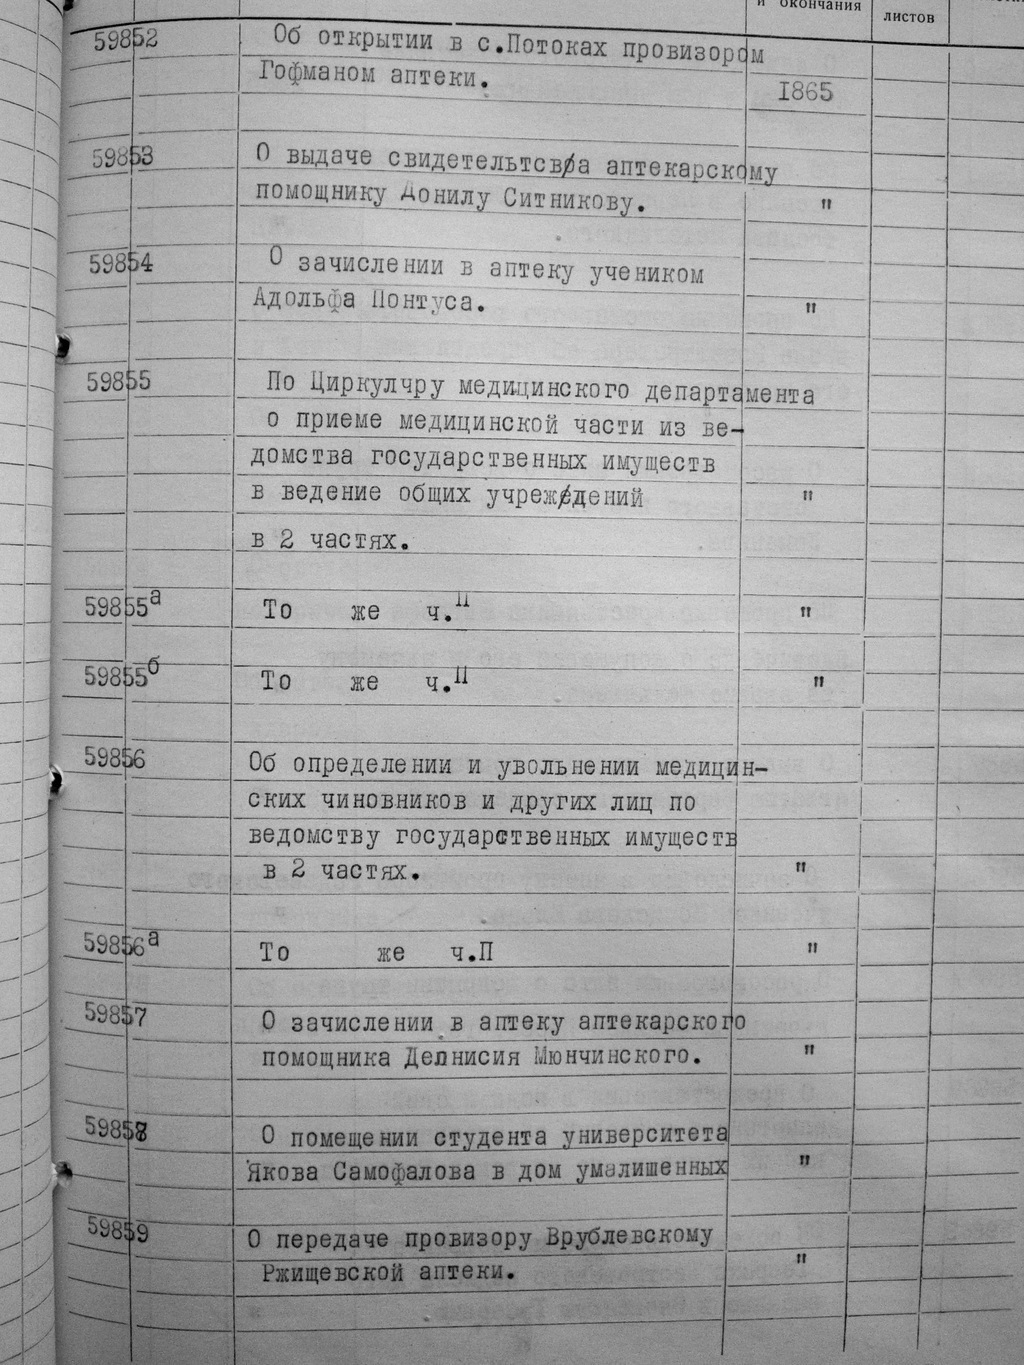 и окончания
листов
59852 Об открытии в с.Потоках провизором
Гофманом аптеки.
1865
59853 О выдаче свидетельтсва аптекарскому
помощнику Донилу Ситникову. "
59854 О зачислении в аптеку учеником
Адольфа Понтуса. "
59855 По Циркулчру медицинского департамента
о приеме медицинской части из ве-
домства государственных имуществ
в ведение общих учреждений "
в 2 частях.
59855а То же ч.II "
59855б То же ч.II "
59856 Об определении и увольнении медицин-
ских чиновников и других лиц по
ведомству государственных имуществ
в 2 частях. "
59856а То же ч.П "
59857 О зачислении в аптеку аптекарского
помощника Делнисия Мюнчинского. "
59858 О помещении студента университета
Якова Самофалова в дом умалишенных "
59859 О передаче провизору Врублевскому
Ржищевской аптеки. "